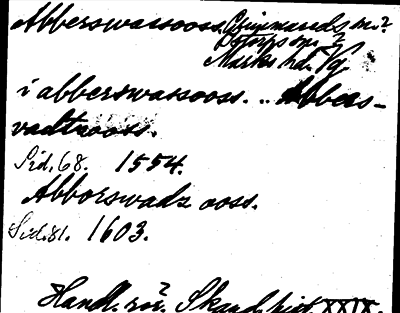 Abberswassooss. Grimmareds sn.?
Istorps sn. ?
Marks hd. Vg
i abberswassooss. .. Abbers-
vadtzooss.
Sid. 68. 1554.
Abborswadz ooss.
Sid. 81. 1603.
Handl. rör. Skand. hist. XXIX.